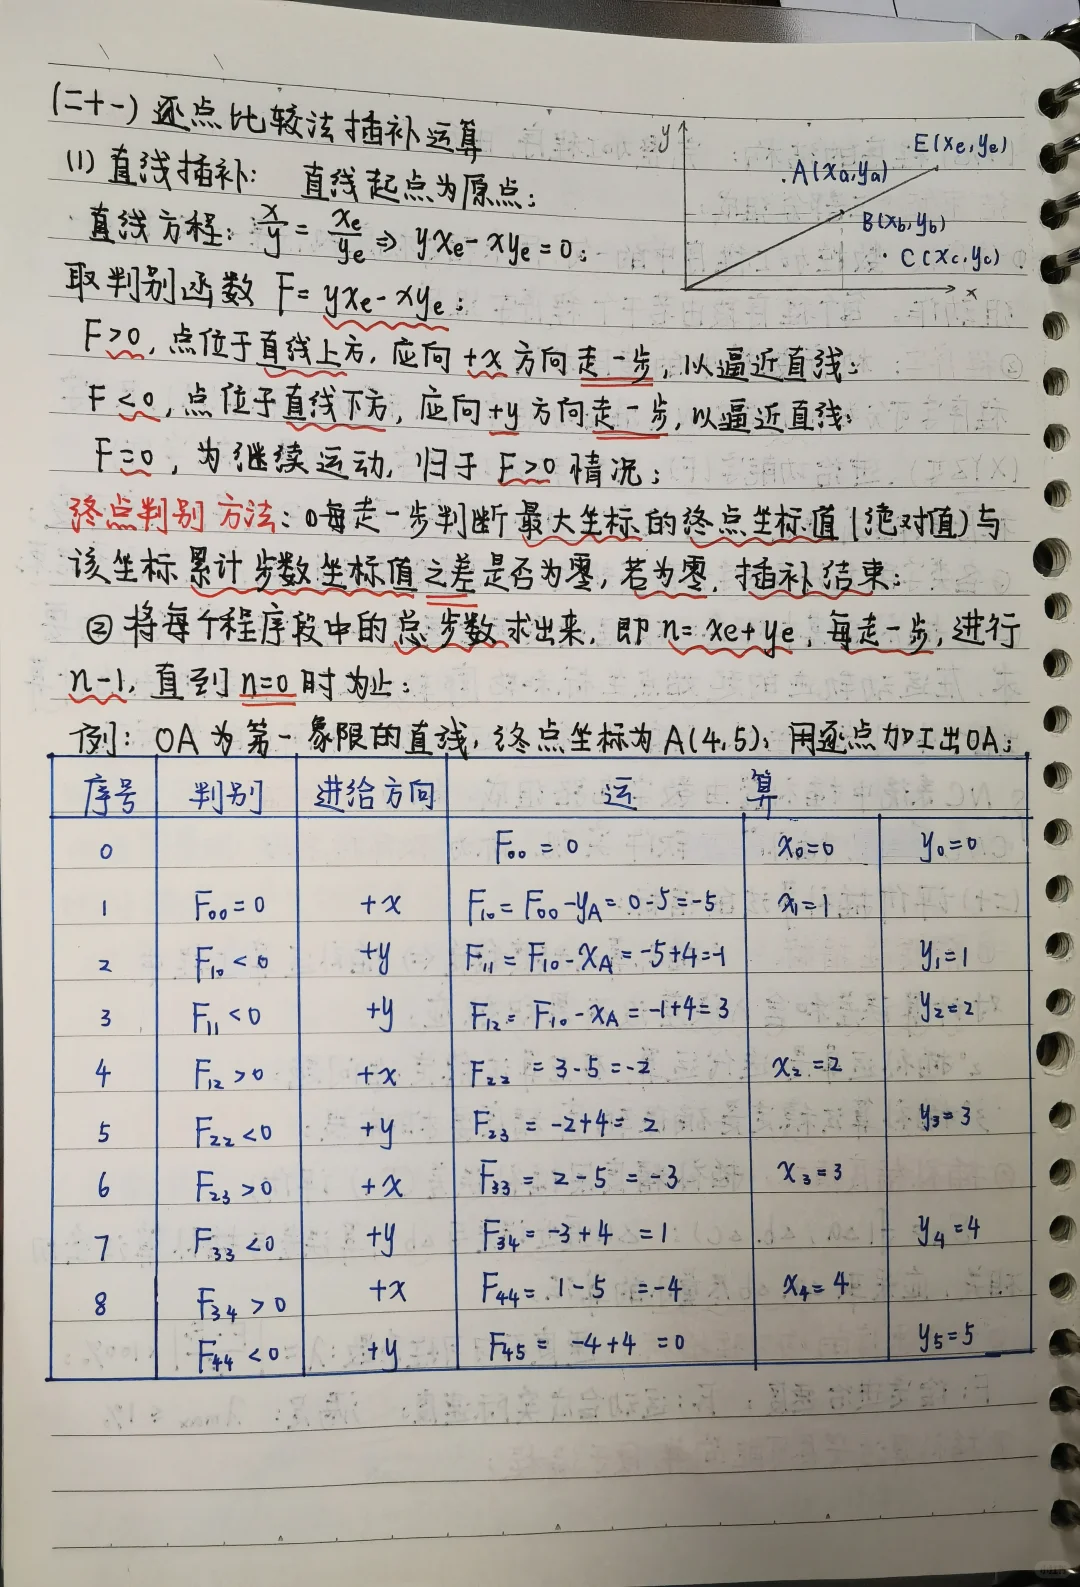 (二十一) 逐点比较法插补运算
(1) 直线插补: 直线起点为原点;
直线方程: x/y = xe/ye ⇒ yxe - xye = 0;
取判别函数 F = yxe - xye;
y
E(xe, ye)
A(xa, ya)
B(xb, yb)
C(xc, yc)
x
F>0, 点位于直线上方, 应向+x方向走一步, 以逼近直线;
F<0, 点位于直线下方, 应向+y方向走一步, 以逼近直线;
F=0, 为继续运动, 归于F>0情况;
终点判别方法: ①每走一步判断最大坐标的终点坐标值(绝对值)与
该坐标累计步数坐标值之差是否为零, 若为零, 插补结束;
②将每个程序段中的总步数求出来, 即n=xe+ye, 每走一步, 进行
n-1, 直到n=0时为止;
例: OA为第一象限的直线, 终点坐标为A(4,5), 用逐点加工出OA;
序号 判别 进给方向 运算
0 F00=0 x0=0 y0=0
1 F00=0 +x F10=F00-yA=0-5=-5 x1=1
2 F10<0 +y F11=F10-xA=-5+4=-1 y1=1
3 F11<0 +y F12=F10-xA=-1+4=3 y2=2
4 F12>0 +x F22=3-5=-2 x2=2
5 F22<0 +y F23=-2+4=2 y3=3
6 F23>0 +x F33=2-5=-3 x3=3
7 F33<0 +y F34=-3+4=1 y4=4
8 F34>0 +x F44=1-5=-4 x4=4
F44<0 +y F45=-4+4=0 y5=5